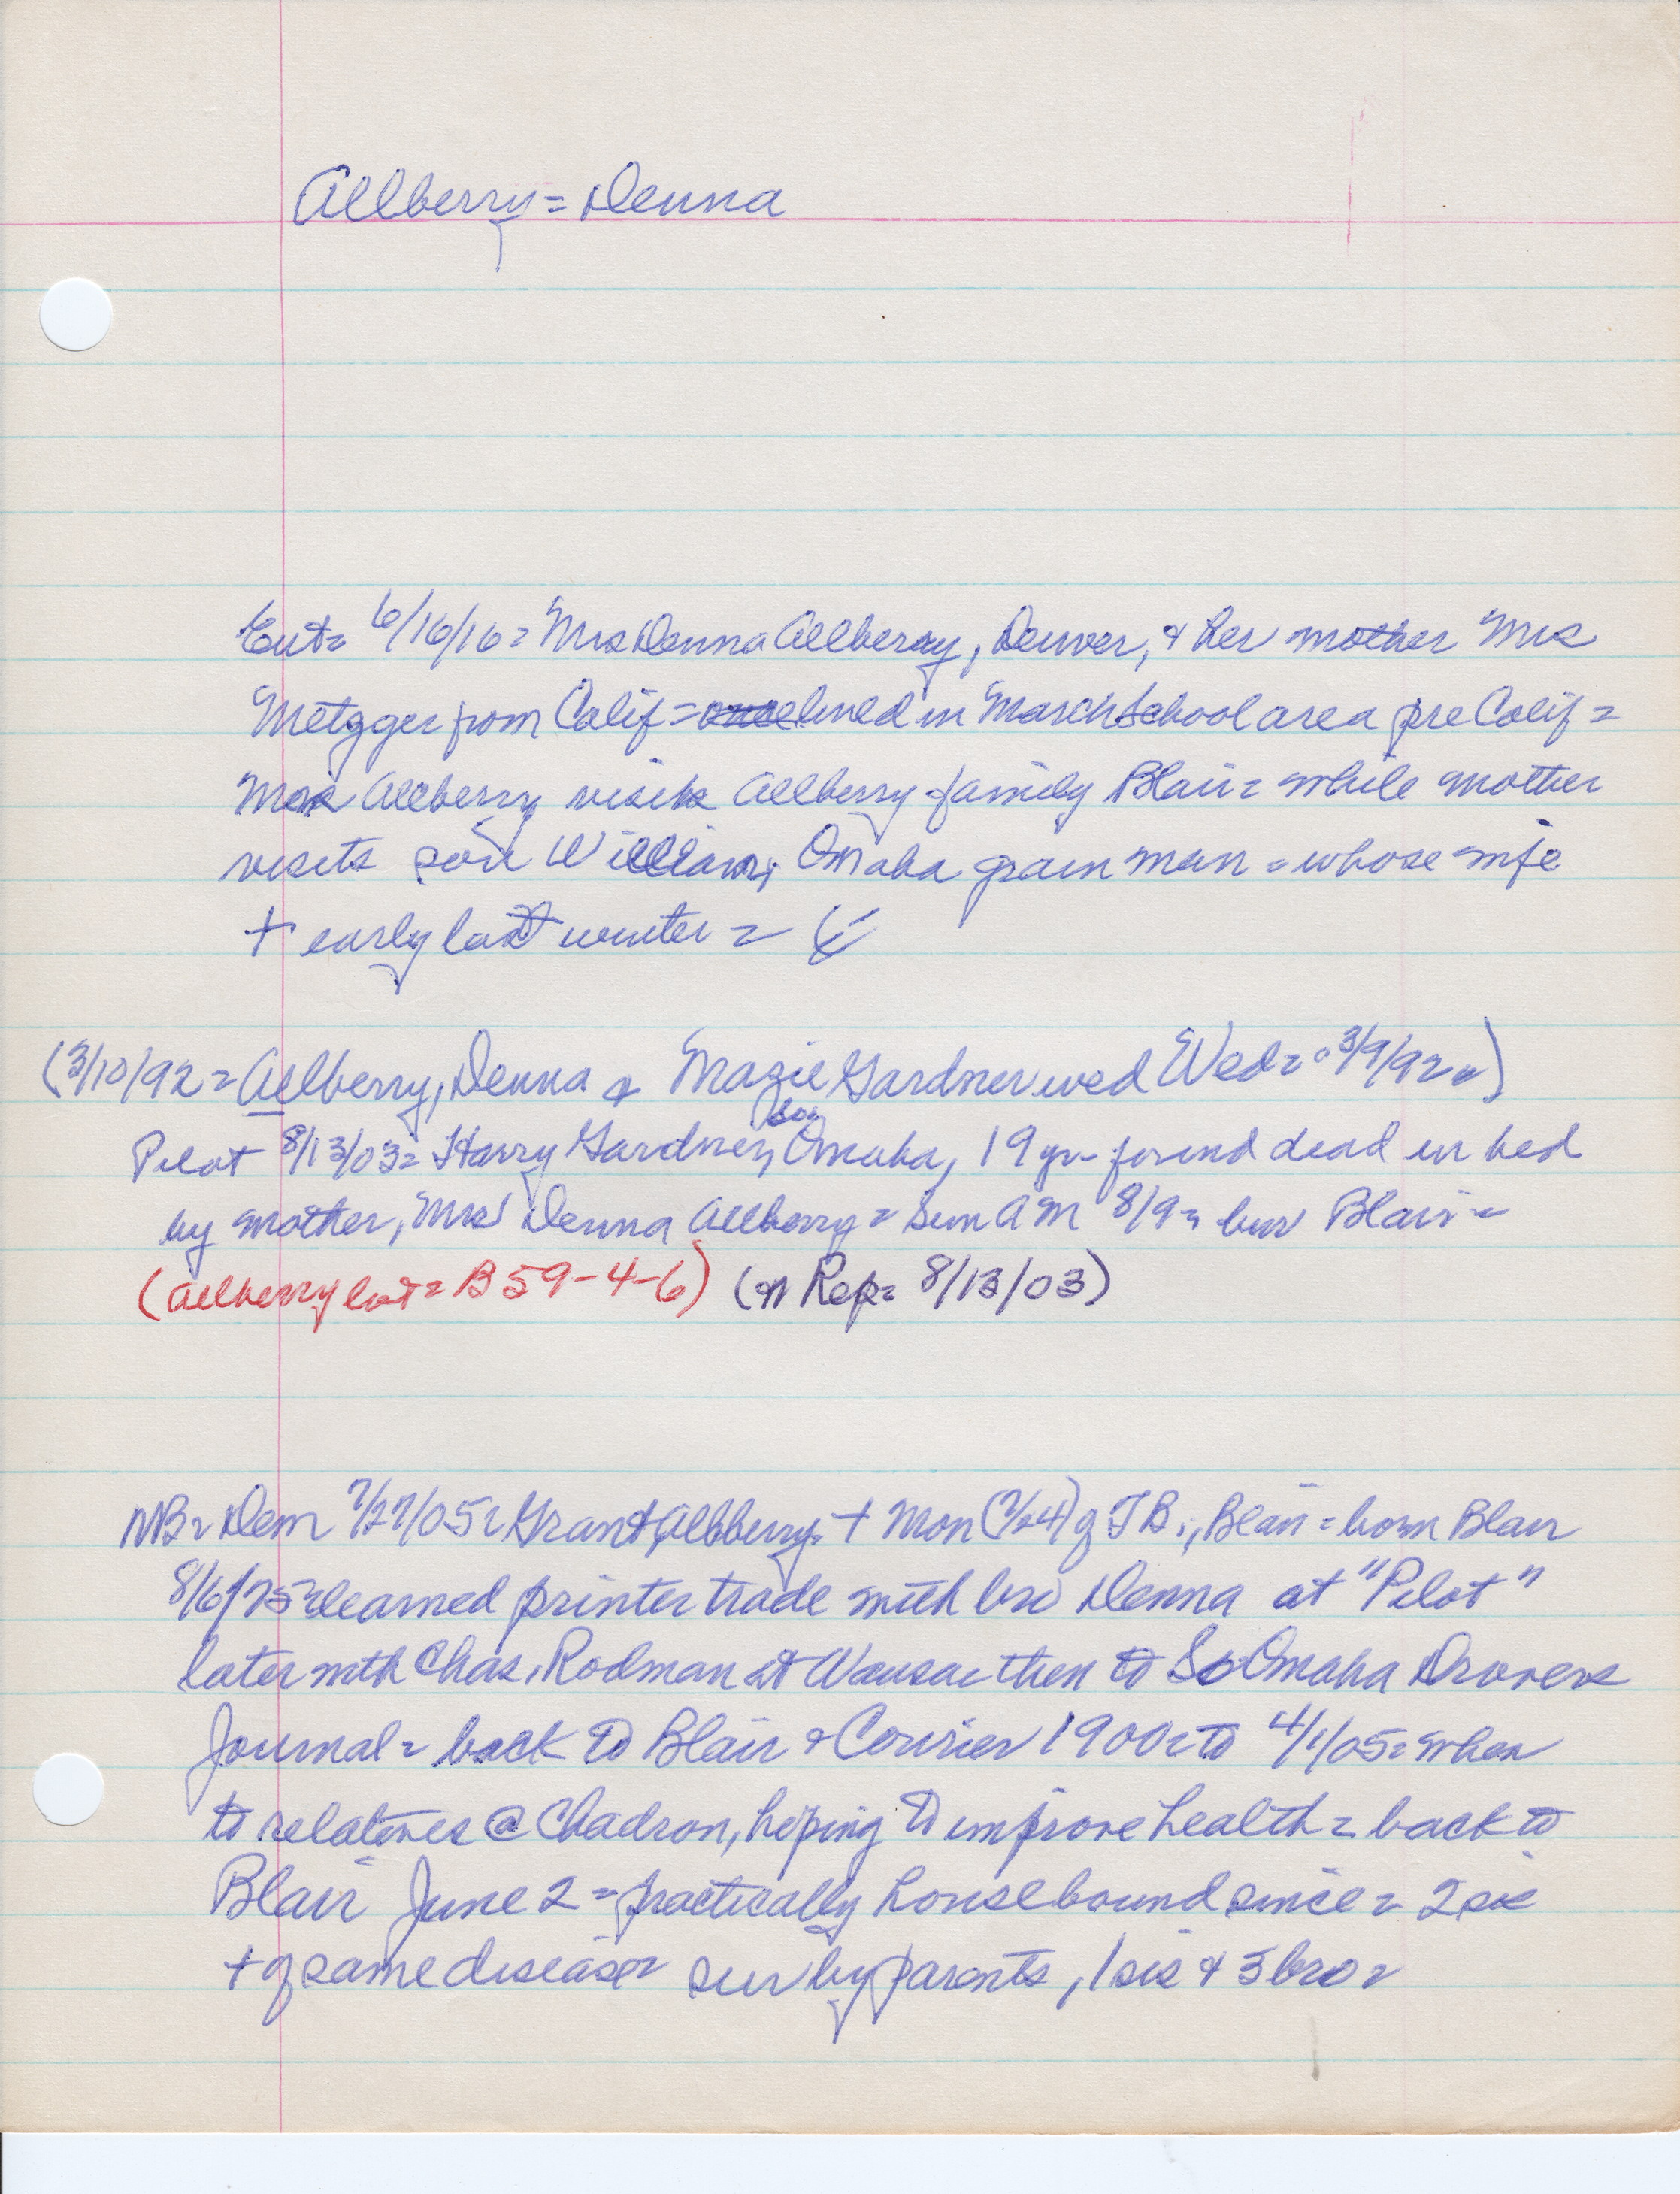 Allberry = Denna
Ent = 6/16/16 = Mrs Denna Allberry, Denver, & her mother Mrs
Metzger from Calif = lived in March School area pre Calif =
Mrs Allberry visits Allberry family Blair = while mother
visits son William, Omaha grain man = whose wife
+ early last winter =
(3/10/92 = Allberry, Denna & Magie Gardner wed Wed = 3/9/92 =)
Pilot 8/13/03 = Harry Gardner, So. Omaha, 19 yr - found dead in bed
by mother, Mrs Denna Allberry = Sun AM 8/9 = bur Blair =
(Allberry lot = B 59-4-6) (n Rep = 8/13/03)
NB = Dem 7/27/05 = Grant Allberry + Mon (7/24) of TB., Blair = born Blair
8/6/75 = learned printer trade with bro Denna at "Pilot"
later with Chas. Rodman at Wausa = then to So Omaha Drovers
Journal = back to Blair & Courier 1900 = to 4/1/05 = when
to relatives @ Chadron, hoping to improve health = back to
Blair June 2 = practically housebound since = 2 sis
+ of same disease = sur by parents, 1 sis & 3 bro =